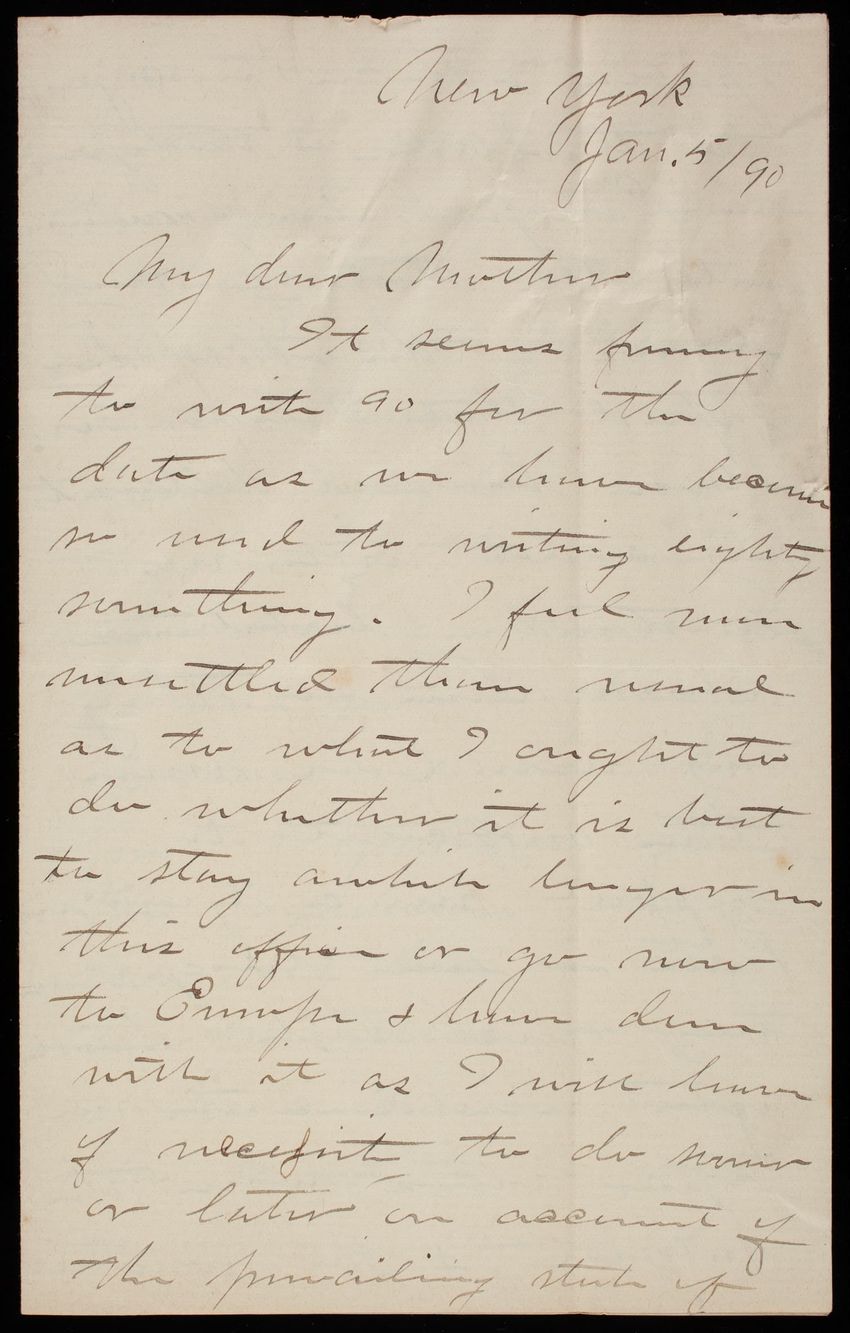 New York
Jan. 5/90
My dear Mother
It seems funny
to write 90 for the
date as we have become
so used to writing eighty
something. I feel more
unsettled than usual
as to what I ought to
do whether it is best
to stay awhile longer in
this office or go now
to Europe & have done
with it as I will have
of necessity to do sooner
or later on account of
the prevailing state of